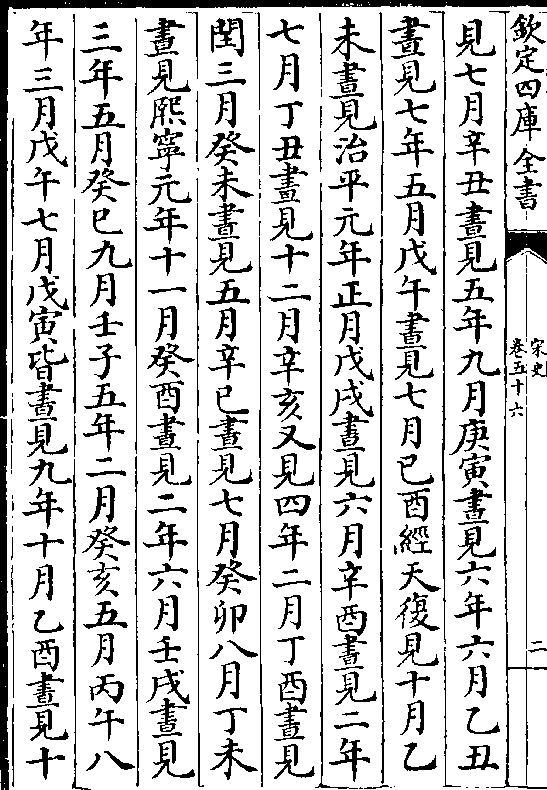 欽定四庫全書
宋史
卷五十六
二
見七月辛丑晝見五年九月庚寅晝見六年六月乙丑
晝見七年五月戊午晝見七月已酉經天復見十月乙
未晝見治平元年正月戊戌晝見六月辛酉晝見二年
七月丁丑晝見十二月辛亥又見四年二月丁酉晝見
閏三月癸未晝見五月辛已晝見七月癸卯八月丁未
晝見熙寧元年十一月癸酉晝見二年六月壬戌晝見
三年五月癸巳九月壬子五年二月癸亥五月丙午八
年三月戊午七月戊寅皆晝見九年十月乙酉晝見十